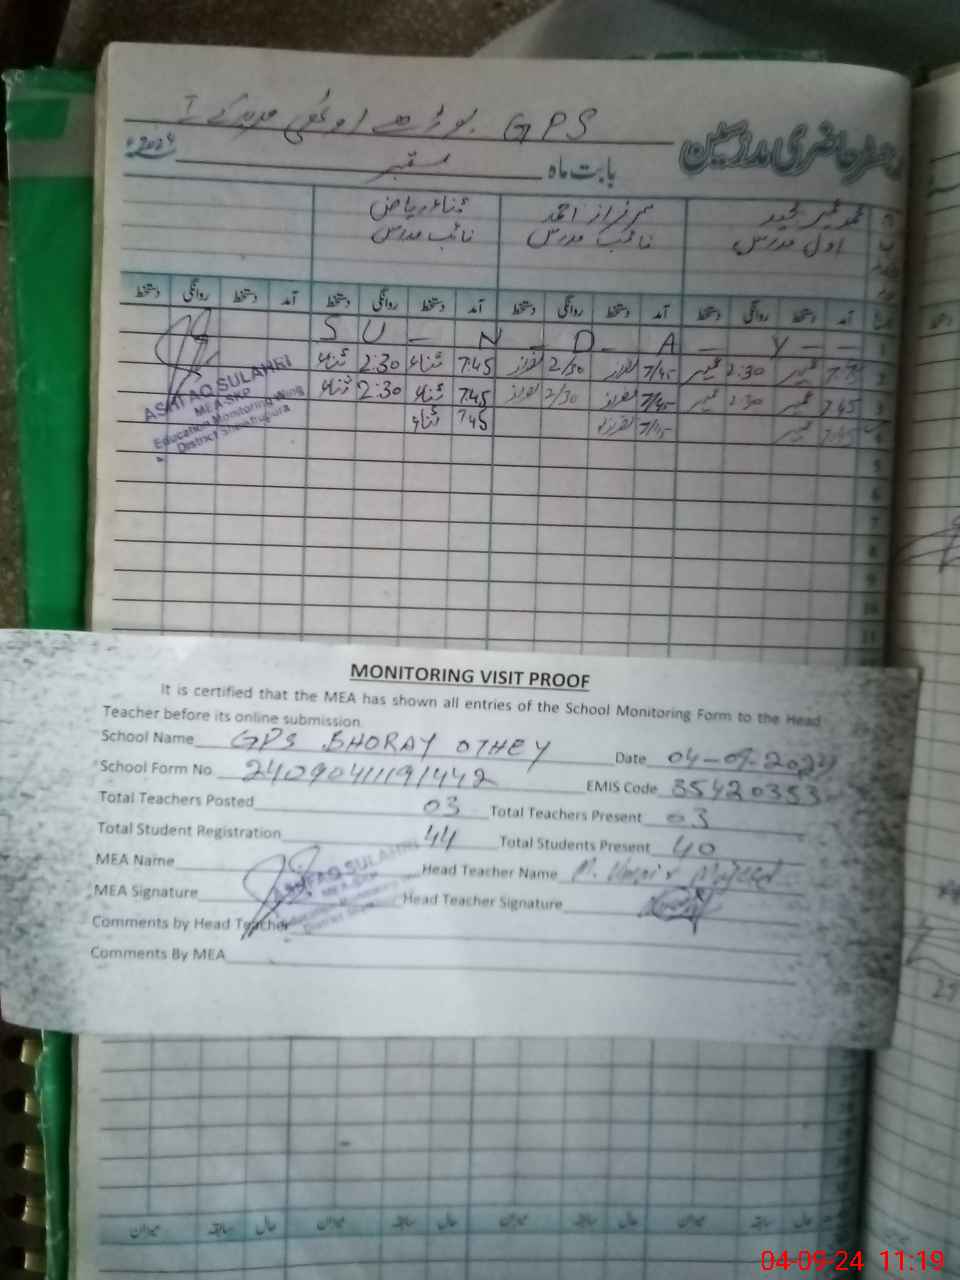 GPS بوڑھے اوٹھی مریدکے I
رجسٹر حاضری مدرسین
بابت ماہ ستمبر 2024
محمد عمیر مجید سرفراز احمد ثناء ریاض
اول مدرس نائب مدرس نائب مدرس
آمد دستخط روانگی دستخط آمد دستخط روانگی دستخط آمد دستخط روانگی دستخط آمد دستخط روانگی دستخط
1 S U - N - D - A - Y - -
2 7:45 عمیر 2:30 عمیر 7/45 سرفراز 2/30 سرفراز 7:45 ثناء 2:30 ثناء
3 7:45 عمیر 2:30 عمیر 7/45 سرفراز 2/30 سرفراز 7:45 ثناء 2:30 ثناء
4 7:45 عمیر 7/45 سرفراز 7:45 ثناء
ASHFAQ SULAHRI
MEA-SKP
Education Monitoring Wing
District Sheikhupura
5
6
7
8
9
10
11
MONITORING VISIT PROOF
It is certified that the MEA has shown all entries of the School Monitoring Form to the Head
Teacher before its online submission.
School Name GPS BHORAY OTHEY Date 04-09-2024
School Form No 24090411191442 EMIS Code 35420353
Total Teachers Posted 03 Total Teachers Present 03
Total Student Registration 44 Total Students Present 40
MEA Name Head Teacher Name M. Umair Majeed
MEA Signature Head Teacher Signature
ASHFAQ SULAHRI
MEA-SKP
Comments by Head Teacher
Comments By MEA
میزان سابقہ حال میزان سابقہ حال میزان سابقہ حال میزان سابقہ حال
04-09-24 11:19